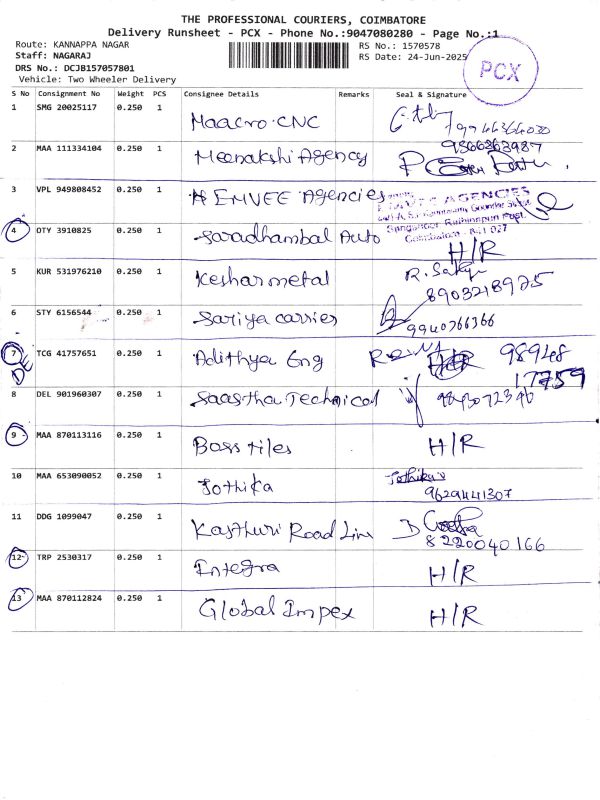 THE PROFESSIONAL COURIERS, COIMBATORE
Delivery Runsheet - PCX - Phone No.:9047080280 - Page No.:1
Route: KANNAPPA NAGAR
RS No.: 1570578
Staff: NAGARAJ
RS Date: 24-Jun-2025
DRS No.: DCJB157057801
Vehicle: Two Wheeler Delivery
PCX
S No Consignment No Weight PCS Consignee Details Remarks Seal & Signature
1 SMG 20025117 0.250 1 Maacro CNC
2 MAA 111334104 0.250 1 Meenakshi Agency 9366363987
3 VPL 949808452 0.250 1 EMVEE Agencies
AGENCIES
Coimbatore - 641 027
4 OTY 3910825 0.250 1 Saradhambal Auto H/R
5 KUR 531976210 0.250 1 Keshar metal R.
8903218975
6 STY 6156544 0.250 1 Sariya carries
9940766366
7 TCG 41757651 0.250 1 Adithya Eng 98948
17759
8 DEL 901960307 0.250 1 Saastha Technical 9843072396
9 MAA 870113116 0.250 1 Boss tiles H/R
10 MAA 653090052 0.250 1 Jothika Jothika
9629441307
11 DDG 1099047 0.250 1 Kasthuri Road Line
8220040166
12 TRP 2530317 0.250 1 Integra H/R
13 MAA 870112824 0.250 1 Global Impex H/R